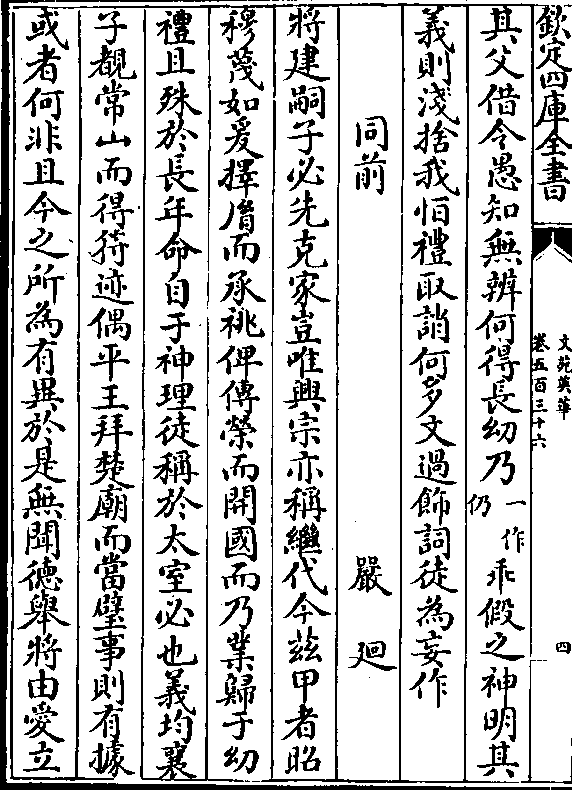 欽定四庫全書
文苑英華
卷五百三十六
四
其父借令愚知無辨何得長幼乃一作仍乖假之神明其
義則淺捨我怕禮取誚何多文過飾詞徒為妄作
同前 嚴廻
將建嗣子必先克家豈唯興宗亦稱繼代今兹甲者昭
穆茂如爰擇胤而承祧俾傳榮而開國而乃業歸于幼
禮且殊於長年命自于神理徒稱於太室必也義均襄
子觀常山而得符迹偶平王拜楚廟而當璧事則有據
或者何非且今之所為有異於是無聞德舉將由愛立